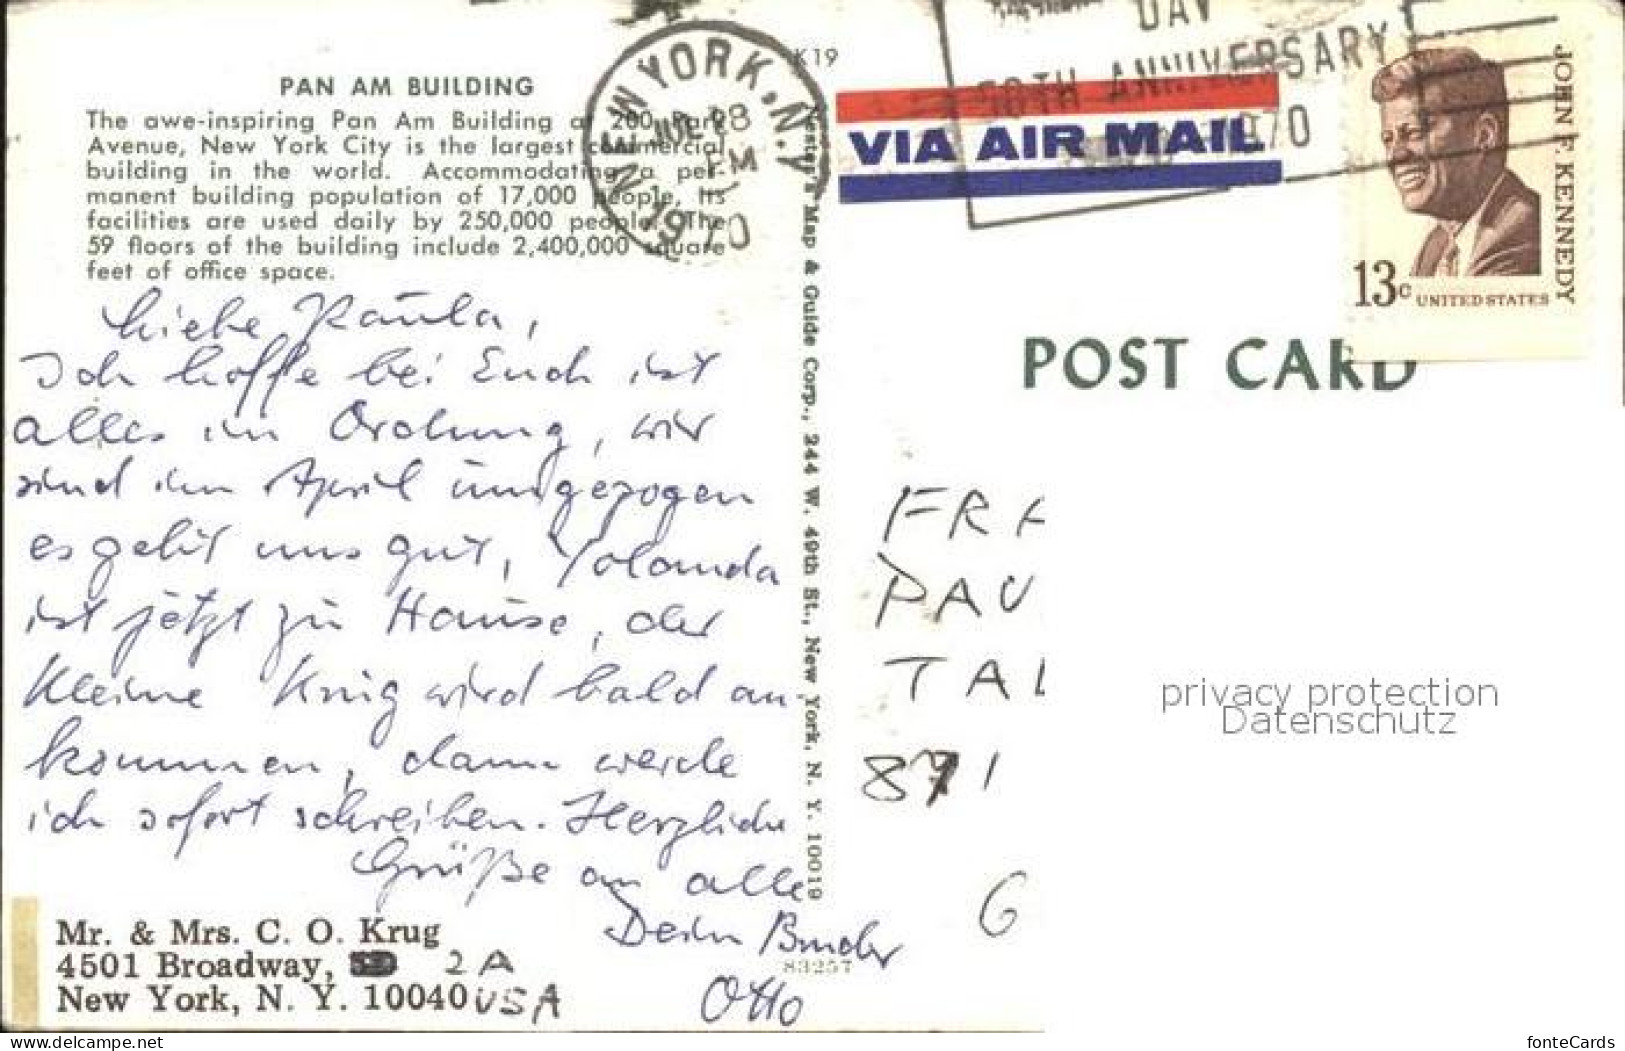 PAN AM BUILDING
The awe-inspiring Pan Am Building at 200 Park
Avenue, New York City is the largest commercial
building in the world. Accommodating a per-
manent building population of 17,000 people, its
facilities are used daily by 250,000 people. The
59 floors of the building include 2,400,000 square
feet of office space.
Liebe Paula,
Ich hoffe bei Euch ist
alles in Ordnung, wir
sind im April umgezogen
es geht uns gut, Yolanda
ist jetzt zu Hause, der
kleine Krug wird bald an-
kommen, dann werde
ich sofort schreiben. Herzliche
Grüße an alle
Dein Bruder
Otto
Mr. & Mrs. C. O. Krug
4501 Broadway, 2A
New York, N. Y. 10040 USA
83257
Map & Guide Corp., 244 W. 49th St., New York, N. Y. 10019
K19
NEW YORK, N.Y
28
PM
1970
DAY
50TH ANNIVERSARY
1970
VIA AIR MAIL
JOHN F. KENNEDY
13c UNITED STATES
POST CARD
FRA
PAU
TAL
871
G
privacy protection
Datenschutz
ansichtskartenversand.com
fonteCards